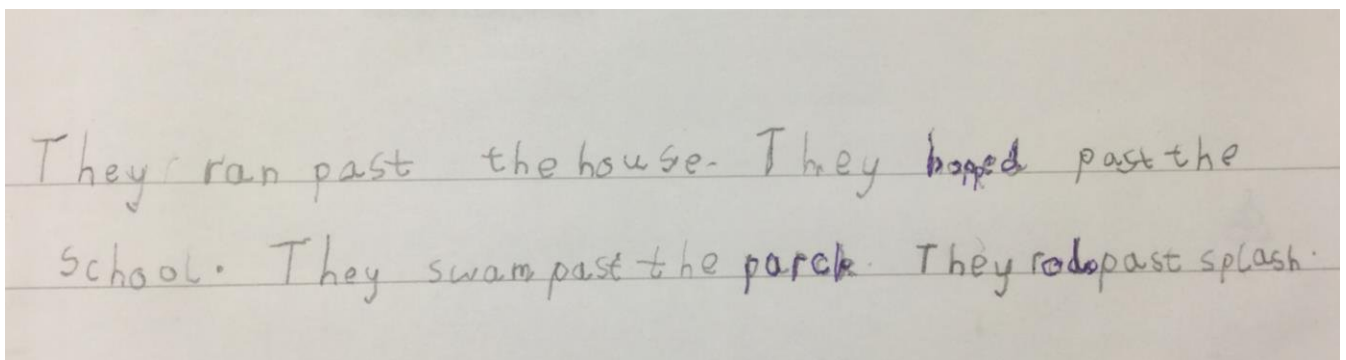 They ran past the house. They hopped past the
school. They swam past the parck. They rode past splash.